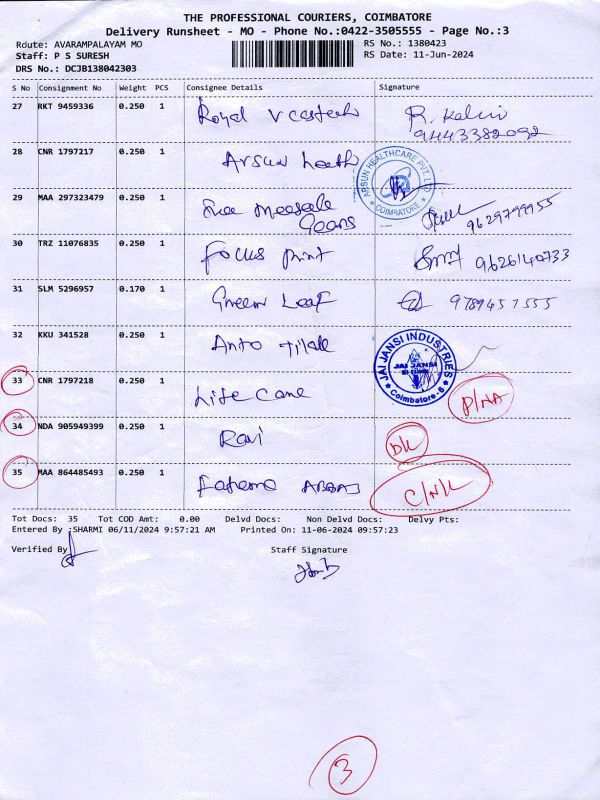 THE PROFESSIONAL COURIERS, COIMBATORE
Delivery Runsheet - MO - Phone No.:0422-3505555 - Page No.:3
Route: AVARAMPALAYAM MO RS No.: 1380423
Staff: P S SURESH RS Date: 11-Jun-2024
DRS No.: DCJB138042303
S No Consignment No Weight PCS Consignee Details Signature
27 RKT 9459336 0.250 1 Royal R. Kalvi
9443382092
28 CNR 1797217 0.250 1 Arsun ARSUN HEALTHCARE PVT. LTD COIMBATORE
29 MAA 297323479 0.250 1
Gears 9629799955
30 TRZ 11076835 0.250 1 Focus Print 9626140733
31 SLM 5296957 0.170 1 Green Leaf 9789457555
32 KKU 341528 0.250 1 Anto JAI JANSI INDUSTRIES JAI JANSI Coimbatore-6
33 CNR 1797218 0.250 1 Life Care P/NA
34 NDA 905949399 0.250 1 Ravi D/L
35 MAA 864485493 0.250 1 C/N/L
Tot Docs: 35 Tot COD Amt: 0.00 Delvd Docs: Non Delvd Docs: Delvy Pts:
Entered By :SHARMI 06/11/2024 9:57:21 AM Printed On: 11-06-2024 09:57:23
Verified By Staff Signature
3